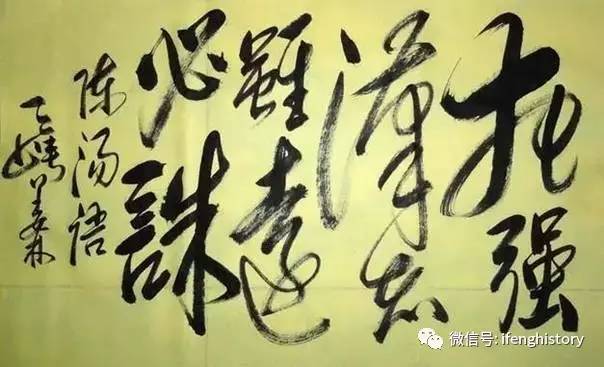 犯强
漢者
雖遠
必誅
陈汤语
微信号: ifenghistory